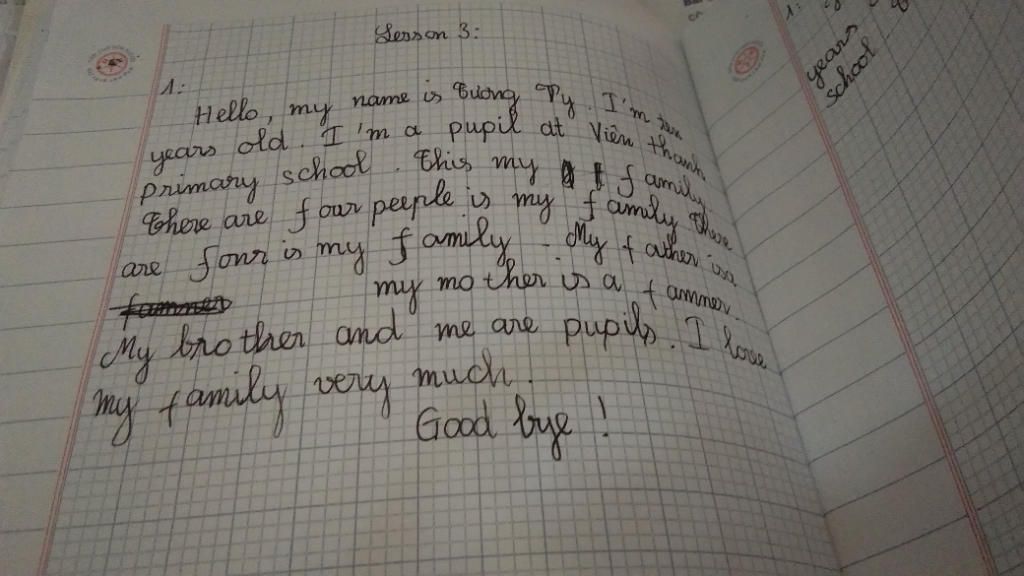 Lesson 3:
1:
Hello, my name is Tuong Vy. I'm ten
years old. I'm a pupil at Viên thanh
primary school. This my family.
There are four peeple is my family there
are four is my family. My father is a
my mother is a fammer
My brother and me are pupils. I love
my family very much.
Good bye!
1:
years
school